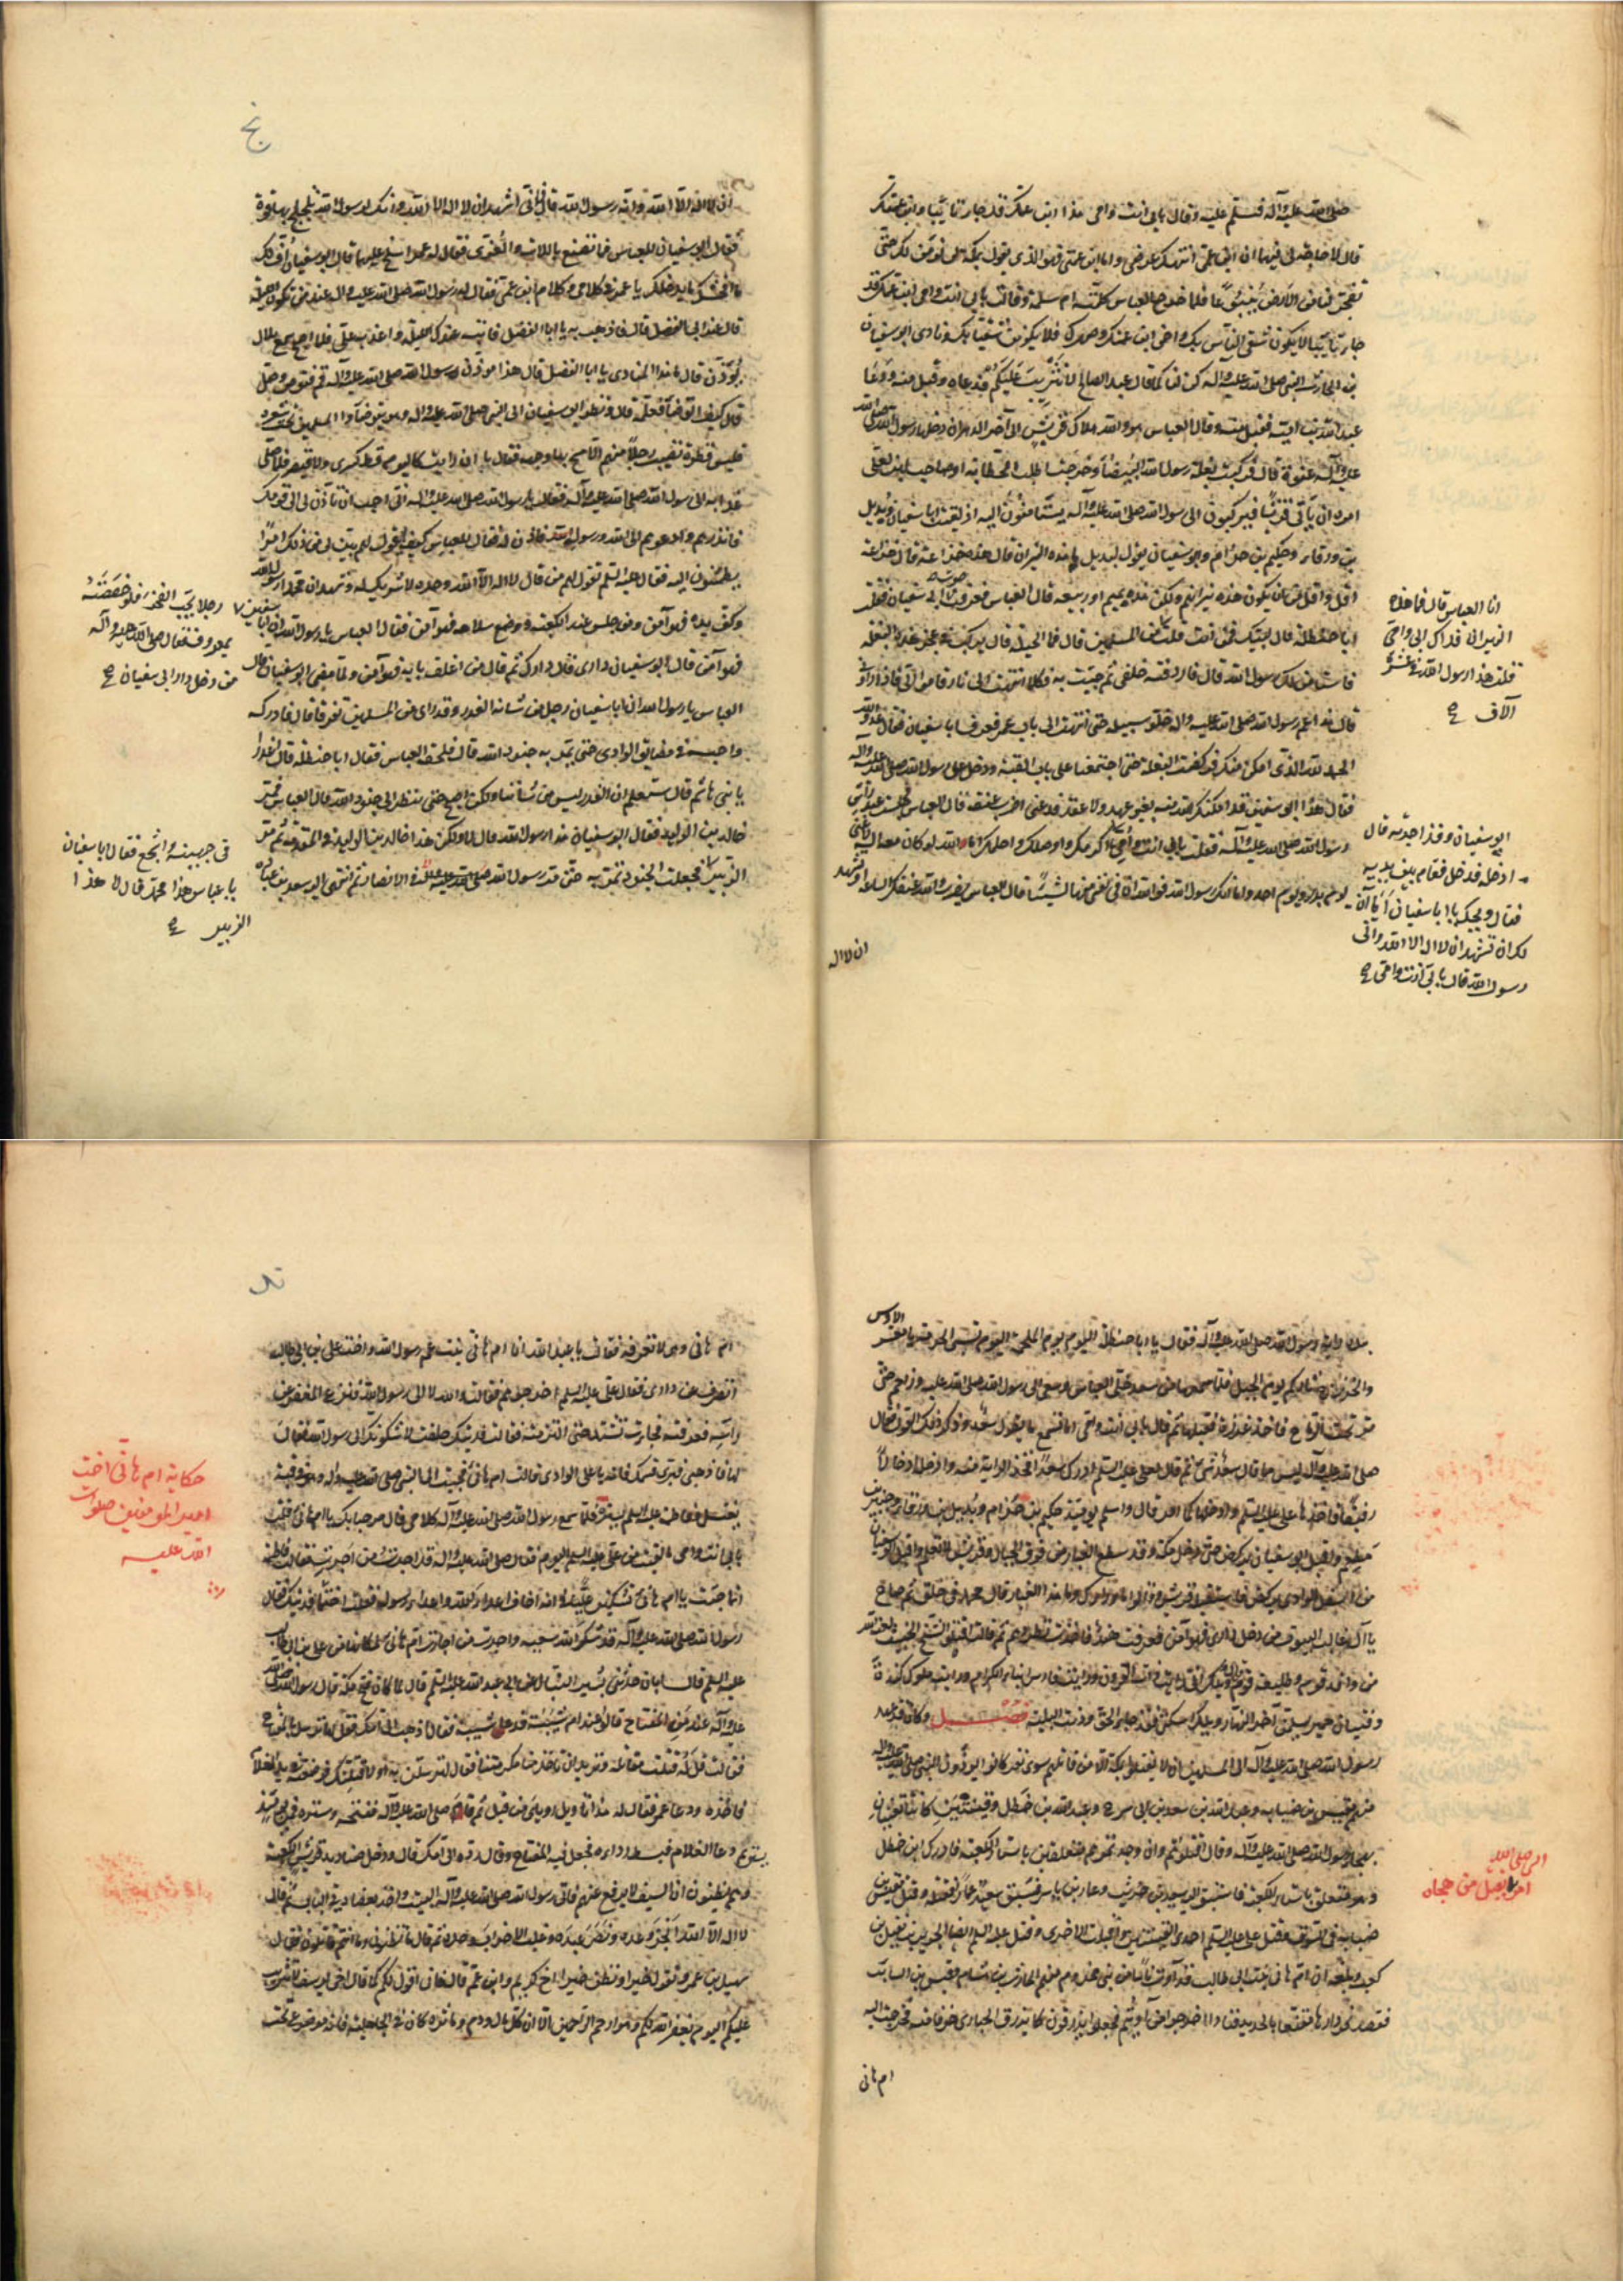 صلى الله عليه وآله فسلم عليه وقال بابي انت وامي هذا ابن عمك قد جاء تائبا وابن عمتك
قال لا حاجة لي فيهما ان ابن عمي انتهك عرضي واما ابن عمتي فهو الذي يقول بمكة لن نؤمن لك حتى
تفجر لنا من الارض ينبوعا فلما خرج العباس كلمته ام سلمة وقالت بابي انت وامي ابن عمك قد
جاء تائبا لا يكون اشقى الناس بك واخي ابن عمتك وصهرك فلا يكونن شقيا بك ونادى ابو سفيان
بن الحارث النبي صلى الله عليه وآله كن لنا كما قال العبد الصالح لا تثريب عليكم فدعاه وقبل منه ودعا
عبد الله بن امية فقبل منه وقال العباس هو والله هلاك قريش الى آخر الدهر ان دخلها رسول الله صلى الله
عليه وآله عنوة قال فركبت بغلة رسول الله البيضاء وخرجت اطلب الحطابة او صاحب لبن لعلي
امره ان يأتي قريشا فيركبون الى رسول الله صلى الله عليه وآله يستأمنون اليه اذ لقيت ابا سفيان وبديل
بن ورقاء وحكيم بن حزام وابو سفيان يقول لبديل ما هذه النيران قال هذه خزاعة قال خزاعة
اقل واقل من ان يكون هذه نيرانهم ولكن لعل هذه تميم او ربيعة قال العباس فعرفت صوت ابي سفيان فقلت
ابا حنظلة قال لبيك فمن انت قلت
انا العباس قال فما هذه
النيران فداك ابي وامي
قلت هذا رسول الله في عشرة
آلاف صح
من المسلمين قال فما الحيلة قال تركب في عجز هذه البغلة
فاستأمن لك رسول الله قال فاردفته خلفي ثم جئت به فكلما انتهيت الى نار قاموا الي فاذا رأوني
قالوا هذا عم رسول الله صلى الله عليه وآله خلوا سبيله حتى انتهيت الى باب عمر فعرف ابا سفيان فقال عدو الله
الحمد لله الذي امكن منك فركضت البغلة حتى اجتمعنا على باب القبة ودخل على رسول الله صلى الله عليه وآله
فقال هذا ابو سفيان قد امكنك الله منه بغير عهد ولا عقد فدعني اضرب عنقه قال العباس فجلست عند رأس
رسول الله صلى الله عليه وآله فقلت بابي انت وامي
ابو سفيان وقد اجرته قال
ادخله فدخل فقام بين يديه
فقال ويحك يا ابا سفيان اما آن
لك ان تشهد ان لا اله الا الله واني
رسول الله قال بابي انت وامي صح
ما اكرمك واوصلك واحلمك اما والله لو كان معه اله لاغنى
يوم بدر ويوم احد واما انك رسول الله فوالله ان في نفسي منها لشيئا قال العباس يضرب والله عنقك الساعة او تشهد
ان لا اله
نج
ان لا اله الا الله وانه رسول الله قال فاني اشهد ان لا اله الا الله وانك لرسول الله تلجلج بها فوه
فقال ابو سفيان للعباس فما نصنع باللات والعزى فقال له عمر اسلح عليهما قال ابو سفيان اف لك
ما افحشك ما يدخلك يا عمر في كلامي وكلام ابن عمي فقال له رسول الله صلى الله عليه وآله عند من تكون الليلة
قال عند ابي الفضل قال فاذهب به يا ابا الفضل فابته عندك الليلة واغد به علي فلما اصبح سمع بلال
يؤذن قال ما هذا المنادي يا ابا الفضل قال هذا مؤذن رسول الله صلى الله عليه وآله قم فتوضأ وصل
قال كيف اتوضأ فعلمه قال ونظر ابو سفيان الى النبي صلى الله عليه وآله وهو يتوضأ وايدي المسلمين تحت شعره
فليس قطرة تصيب رجلا منهم الا مسح بها وجهه فقال بالله ان رأيت كاليوم قط كسرى ولا قيصر فلما صلى
غدا به الى رسول الله صلى الله عليه وآله فقال يا رسول الله صلى الله عليه وآله اني احب ان تأذن لي الى قومك
فانذرهم وادعوهم الى الله ورسوله فاذن له فقال للعباس كيف اقول لهم بين لي من ذلك امرا
يطمئنون اليه فقال عليه السلم تقول لهم من قال لا اله الا الله وحده لا شريك له وشهد ان محمدا رسول الله
وكف يده فهو آمن ومن جلس عند الكعبة ووضع سلاحه فهو آمن فقال العباس يا رسول الله ان ابا سفين
رجلا يحب الفخر فلو خصصته
بمعروف فقال صلى الله عليه وآله
من دخل دار ابي سفيان صح
فهو آمن قال ابو سفيان داري قال دارك ثم قال من اغلق بابه فهو آمن ولما مضى ابو سفيان قال
العباس يا رسول الله ان ابا سفيان رجل من شأنه الغدر وقد رأى من المسلمين تفرقا قال فادركه
واحبسه في مضايق الوادي حتى يمر به جنود الله قال فلحقه العباس فقال ابا حنظلة قال اغدرا
يا بني هاشم قال ستعلم ان الغدر ليس من شأننا ولكن اصبح حتى تنظر الى جنود الله قال العباس فمر
خالد بن الوليد فقال ابو سفيان هذا رسول الله قال لا ولكن هذا خالد بن الوليد في المقدمة ثم مر
الزبير
في جهينة واشجع فقال ابا سفيان
يا عباس هذا محمد قال لا هذا
الزبير صح
فجعلت الجنود تمر به حتى مر رسول الله صلى الله عليه وآله في الانصار ثم انتهى اليه سعد بن عبادة
بيده راية رسول الله صلى الله عليه وآله فقال يا ابا حنظلة اليوم يوم الملحمة اليوم تسبى الحرمة يا معشر الاوس
والخزرج ثاركم يوم الجبل فلما سمعها من سعد خلى العباس وسعى الى رسول الله صلى الله عليه وزاحم حتى
مر تحت الرماح فاخذ غرزه فقبلها ثم قال بابي انت وامي اما تسمع ما يقول سعد وذكر ذلك القول فقال
صلى الله عليه وآله ليس مما قال سعد شيء ثم قال لعلي عليه السلم ادرك سعدا فخذ الراية منه وادخلها ادخالا
رفيقا فاخذها علي عليه السلم وادخلها كما امر قال واسلم يومئذ حكيم بن حزام وبديل بن ورقاء وجبير بن
مطعم واقبل ابو سفيان يركض حتى دخل مكة وقد سطع الغبار من فوق الجبال وقريش لا تعلم واقبل ابو سفيان
من اسفل الوادي يركض فاستقبله قريش وقالوا ما وراءك وما هذا الغبار قال محمد في خلق ثم صاح
يا آل غالب البيوت من دخل داري فهو آمن فعرفت هند فاخذت تطردهم ثم قالت اقتلوا الشيخ الخبيث لعنه الله
من وافد قوم وطليعة قوم قال ويلك اني رأيت ذات القرون ورأيت فارس ابناء الكرام ورأيت ملوك كندة
وفتيان حمير يسلمن آخر النهار ويلك اسكتي فقد والله جاء الحق ودنت البلية فصل وكان قد عهد
رسول الله صلى الله عليه وآله الى المسلمين ان لا يقتلوا بمكة الا من قاتلهم سوى نفر كانوا يؤذون النبي صلى الله عليه وآله
منهم مقيس بن صبابة وعبد الله بن سعد بن ابي سرح وعبد الله بن خطل وقينتين كانتا تغنيان
بهجاء رسول الله صلى الله عليه وآله وقال اقتلوهم وان وجدتموهم متعلقين باستار الكعبة فادرك ابن خطل
امر النبي صلى الله
بقتل من هجاه
وهو متعلق باستار الكعبة فاستبق اليه سعيد بن حريث وعمار بن ياسر فسبق سعيد عمارا فقتله وقتل مقيس بن
صبابة في السوق وقتل علي عليه السلم احدى القينتين وافلتت الاخرى وقتل عليه السلم ايضا الحويرث بن نفيل بن
كعب وبلغه ان ام هاني بنت ابي طالب قد آوت ناسا من بني مخزوم منهم الحارث بن هشام وقيس بن السائب
فقصد نحو دارها مقنعا بالحديد فنادى اخرجوا من آويتم فجعلوا يذرقون كما يذرق الحبارى خوفا منه فخرجت اليه
ام هاني
ند
ام هاني وهي لا تعرفه فقالت يا عبد الله انا ام هاني بنت عم رسول الله واخت علي بن ابي طالب
انصرف عن داري فقال علي عليه السلم اخرجوهم فقالت والله لاشكونك الى رسول الله فنزع المغفر عن
رأسه فعرفته فجاءت تشتد حتى التزمته فقالت فديتك حلفت لاشكونك الى رسول الله فقال
لها فاذهبي فبري قسمك فانه باعلى الوادي قالت ام هاني فجئت الى النبي صلى الله عليه وآله وهو في قبة
حكاية ام هاني اخت
امير المؤمنين صلوات
الله عليه
يغتسل وفاطمة عليها السلم يستره فلما سمع رسول الله صلى الله عليه وآله كلامي قال مرحبا بك يا ام هاني قلت
بابي انت وامي ما لقيت من علي عليه السلم اليوم فقال صلى الله عليه وآله قد اجرت من اجرت فقالت فاطمة
انما جئت يا ام هاني تشكين عليا في انه اخاف اعداء الله واعداء رسوله فقلت احتملي فديتك فقال
رسول الله صلى الله عليه وآله قد شكر الله سعيه واجرت من اجارت ام هاني لمكانها من علي بن ابي طالب
عليه السلم قال ابان حدثني بشير النبال عن ابي عبد الله عليه السلم قال لما كان فتح مكة قال رسول الله صلى الله
عليه وآله عند من المفتاح قالوا عند ام شيبة فدعا شيبة فقال اذهب الى امك فقل لها ترسل بالمفتاح
فقالت قل له قتلت مقاتلنا وتريد ان تأخذ منا مكرمتنا فقال لترسلن به او لاقتلنك فوضعته في يد الغلام
فاخذه ودعا عمر فقال له هذا تأويل رؤياي من قبل ثم قام صلى الله عليه وآله ففتحه وستره فمن يومئذ
يستر ثم دعا الغلام فبسط رداءه فجعل فيه المفتاح وقال رده الى امك قال ودخل صناديد قريش الكعبة
وهم يظنون ان السيف لا يرفع عنهم فاتى رسول الله صلى الله عليه وآله البيت واخذ بعضادتي الباب ثم قال
لا اله الا الله انجز وعده ونصر عبده وغلب الاحزاب وحده ثم قال ما تظنون وما انتم قائلون فقال
سهيل بن عمرو نقول خيرا ونظن خيرا اخ كريم وابن عم قال فاني اقول لكم كما قال اخي يوسف لا تثريب
عليكم اليوم يغفر الله لكم وهو ارحم الراحمين الا ان كل مال ودم ومأثرة كان في الجاهلية فانه موضوع تحت